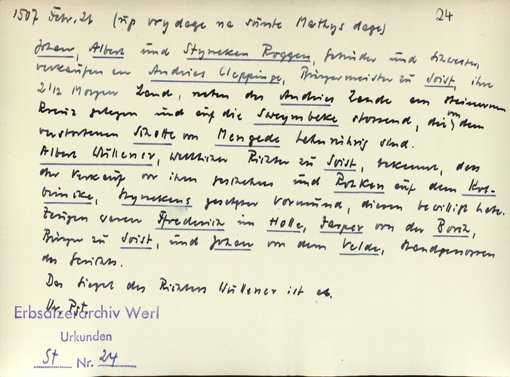 1507 Febr. 26 (up vrydage na sünte Mathys dage) 24
Johan, Albert und Styneken Roggen, Gebrüder und Schwester,
verkaufen an Andries Cleppinge, Bürgermeister zu Soist, ihre
2 1/2 Morgen Land, neben des Andries Lande am steinernen
Kreuz gelegen und auf die Sweymbeke stossend, die von dem
verstorbenen Schotte von Mengede lehnrührig sind.
Albert Hüllener, weltlicher Richter zu Soist, bekennt, dass
der Verkauf vor ihm geschehen und auf dem
Stynekens gesetzter Vormund, diesen bewilligt habe.
Zeugen waren Frederich im Holle, Jasper von der Borch,
Bürger zu Soist, und Johan von dem Velde, Standgenossen
des Gerichts.
Das Siegel des Richters Hüllener ist ab.
Or. Pgt.
Erbsälzerarchiv Werl
Urkunden
St Nr. 24